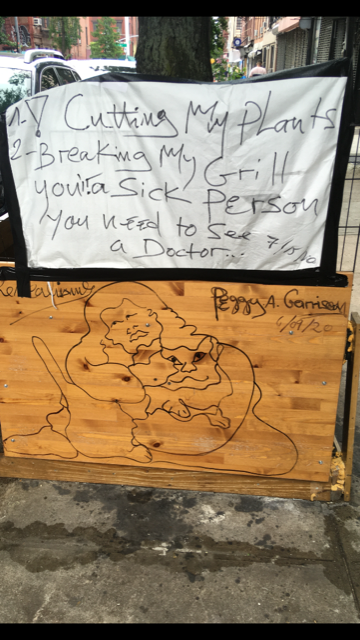 1-! Cutting My Plants
2-Breaking My Grill
you'r a Sick Person
You need to See
a Doctor...
Peggy A. Garrison